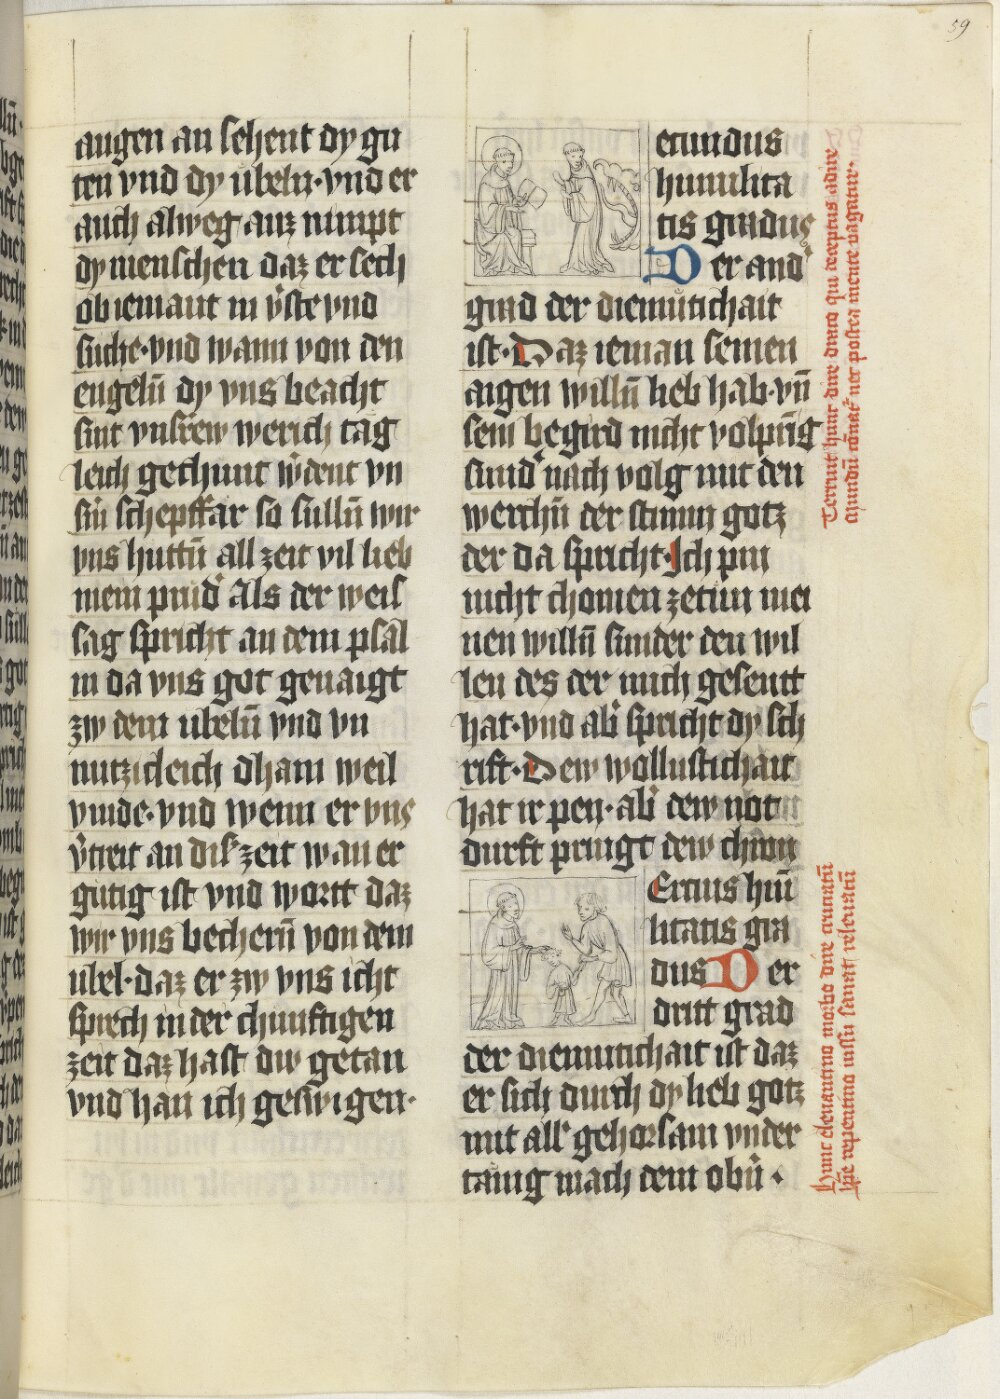 59
augen an sehent dy gu
ten vnd dy ubeln · vnd er
auch alweg auz nimpt
dy menschen daz er sech
ob iemant in v̓ste vnd
suche · vnd wann von den
engelň dy vns beacht
sint vnsrew werich tag
leich gechunt ẘdent vn
sm̄ schepffar so sullū wir
vns huttū all zeit vil lieb
mein prud̓ Als der weis
sag spricht an dem psal
m da vns got genaigt
zw dem ubelū vnd vn
nutzicleich dhain weil
vinde · vnd wenn er vns
v̓treit an dis zeit wan er
gutig ist vnd wortt daz
wir vns becherū von dem
ubel · daz er zw vns icht
sprech in der chunftigen
zeit daz hast dw getan
vnd han ich geswigen ·
ecundus
humilita
tis gradus
Der and̓
grad der diemutichait
ist · Daz ieman seinen
aigen willū lieb hab · vň
sein begird nicht volprīg
sund̓ nach volg mit den
werchū der stimm gotz
der da spricht · Ich pin
nicht chomen zetun mei
nen willū sunder den wil
len des der mich gesentt
hat · vnd ab̓ spricht dy sch
rift · Dew wollustichait
hat ir pen · ab̓ dew not
durft pringt dew chron
Ercius hūi
litatis gra
dus Der
dritt grad
der diemutichait ist daz
er sich durch dy lieb gotz
mit all̓ gehorsam vnder
tanig mach dem obn̄ ·
Terruit hunc dire draco qui deceptus adire
Mundū conat̓ nec postea mente vagatur ·
Hunc elevantino morbo dire cruciatū
hp̄e repentino iussu sanat relevatū